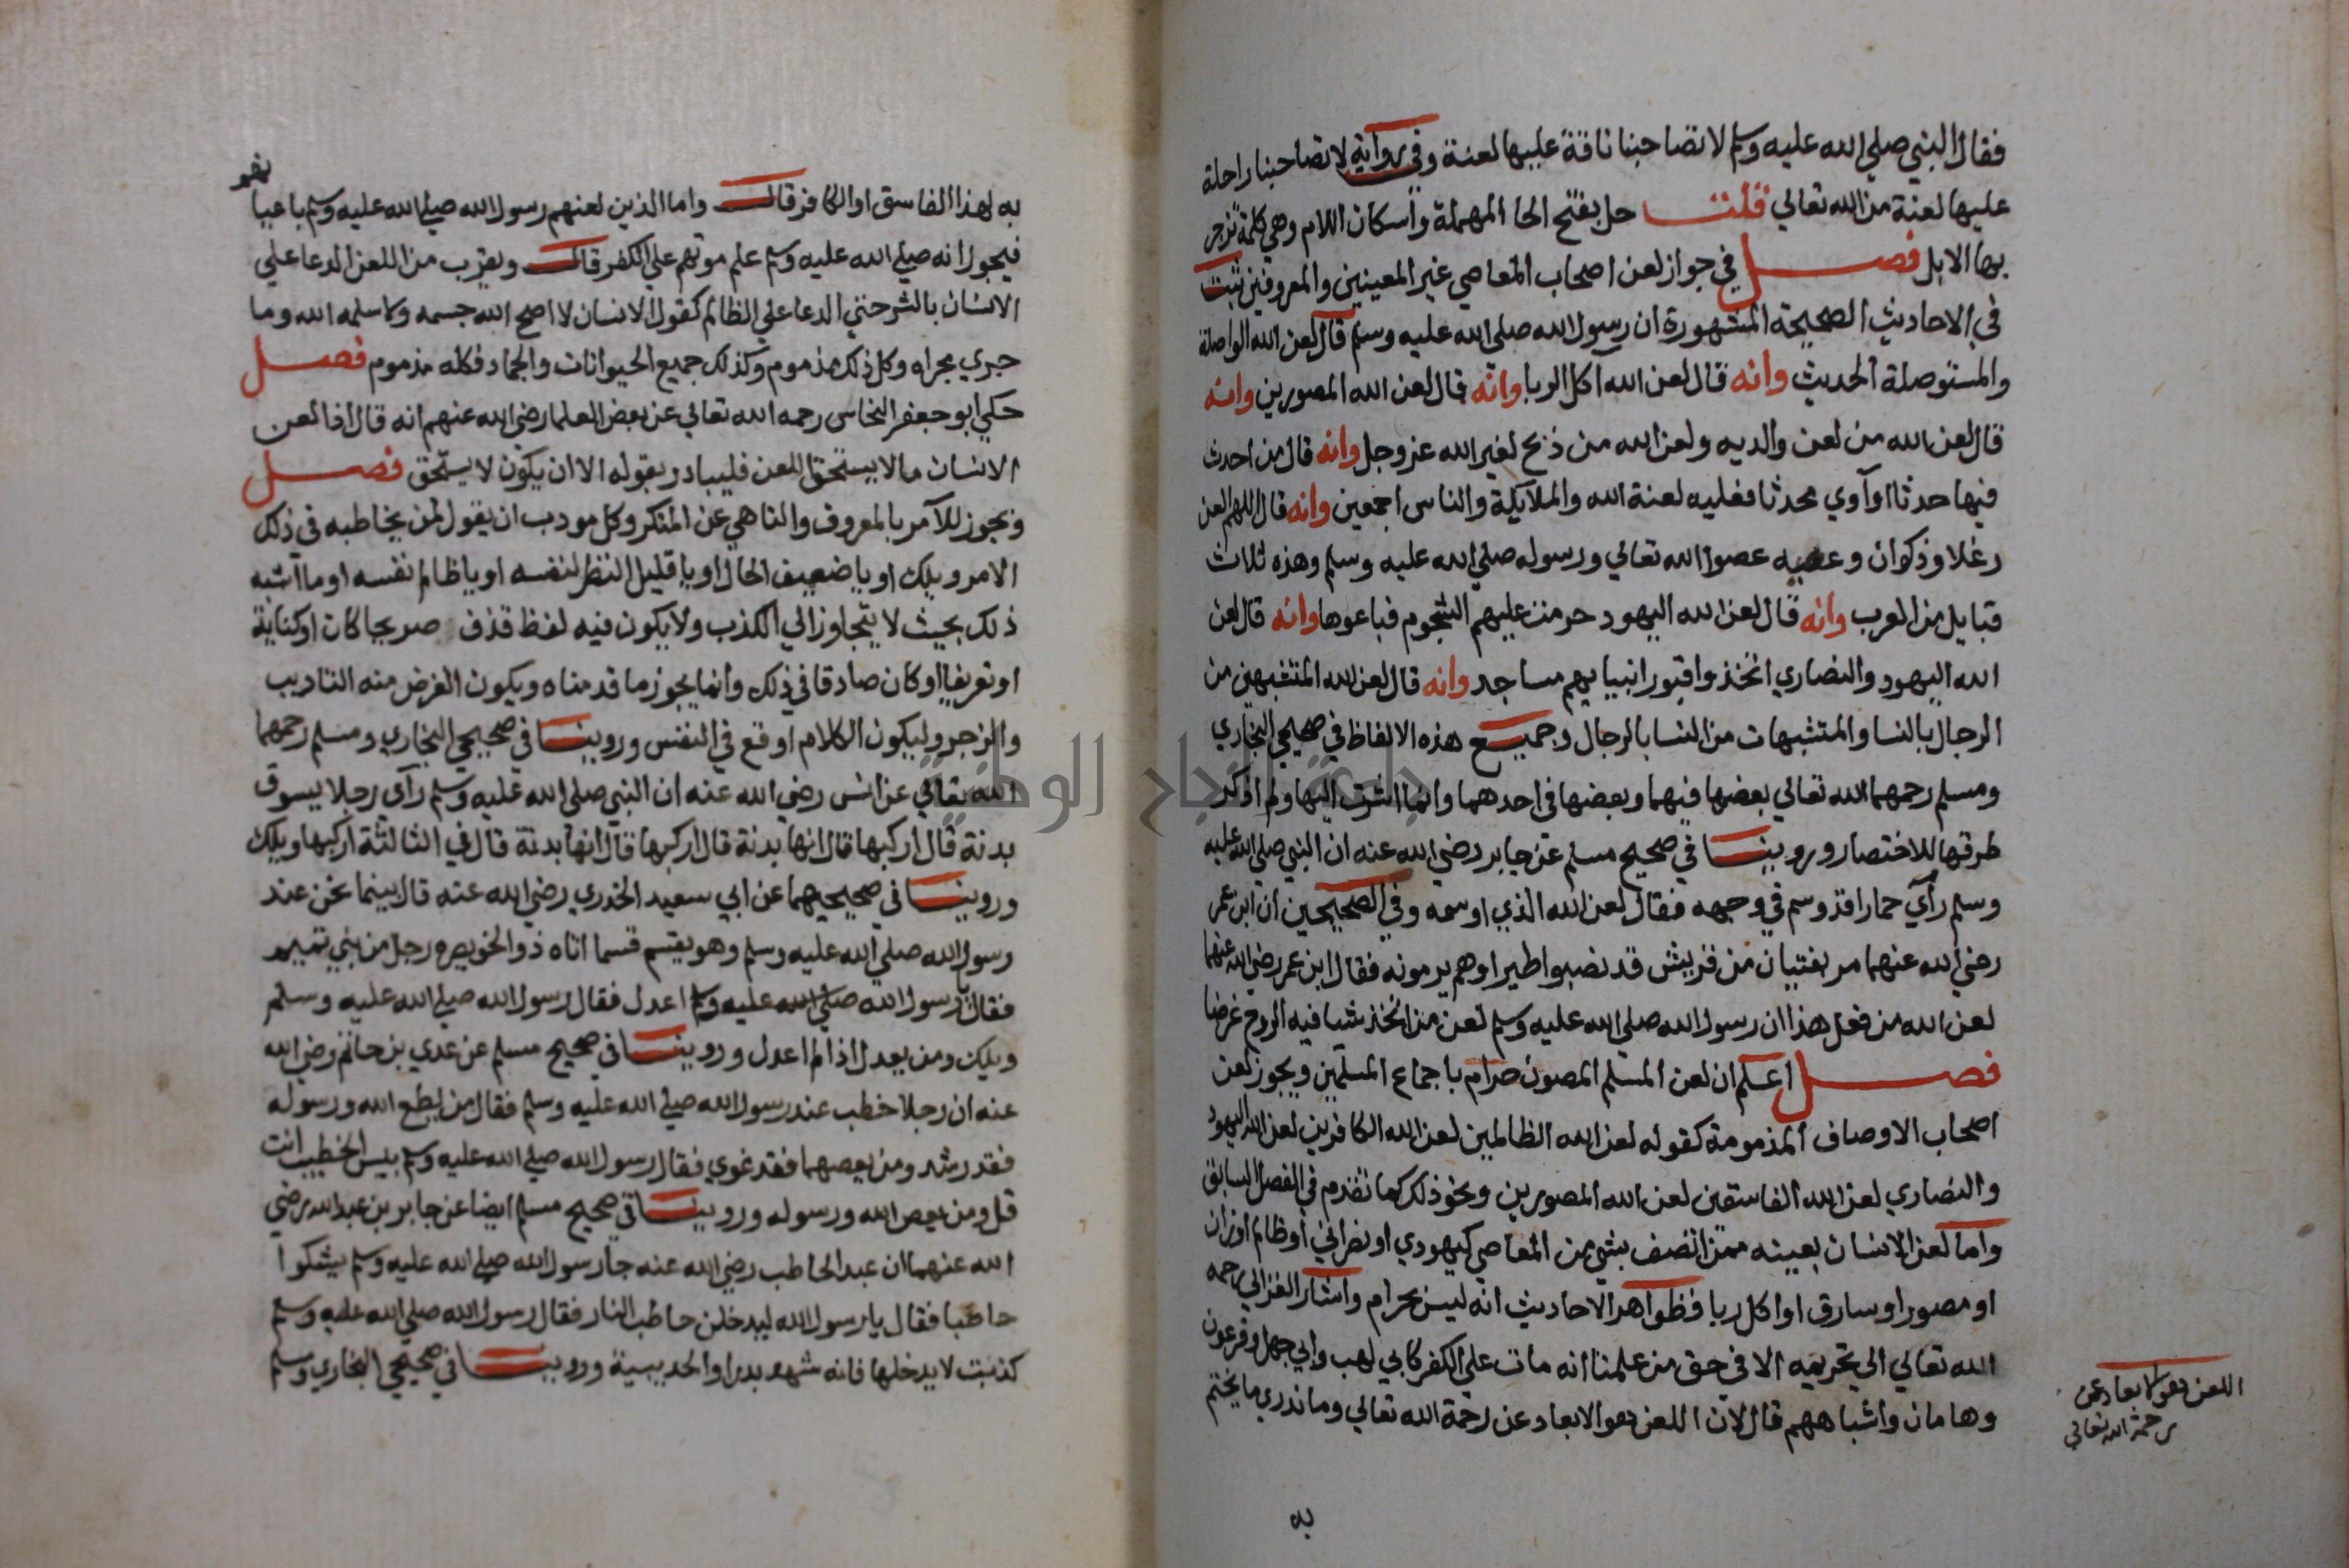 فقال النبي صلي الله عليه وسلم لا تصاحبنا ناقة عليها لعنة وفي رواية لا تصاحبنا راحلة
عليها لعنة من الله تعالي قلت حل بفتح الحا المهملة واسكان اللام وهي كلمة تزجر
بها الابل فصل في جواز لعن اصحاب المعاصي غير المعينين والمعروفين ثبت
في الاحاديث الصحيحة المشهورة ان رسول الله صلي الله عليه وسلم قال لعن الله الواصلة
والمستوصلة الحديث وانه قال لعن الله اكل الربا وانه قال لعن الله المصورين وانه
قال لعن الله من لعن والديه ولعن الله من ذبح لغير الله عز وجل وانه قال من احدث
فيها حدثا اوآوي محدثا فعليه لعنة الله والملايكة والناس اجمعين وانه قال اللهم العن
رعلا وذكوان وعصيه عصوا الله تعالي ورسوله صلي الله عليه وسلم وهذه ثلاث
قبايل من العرب وانه قال لعن الله اليهود حرمت عليهم الشحوم فباعوها وانه قال لعن
الله اليهود والنصاري اتخذوا قبور انبيايهم مساجد وانه قال لعن الله المتشبهين من
الرجال بالنسا والمتشبهات من النسا بالرجال وجميع هذه الالفاظ في صحيحي البخاري
ومسلم رحمهما الله تعالي بعضها فيهما وبعضها في احدهما وانما اشرت اليها ولم اذكر
طرقها للاختصار وروينا في صحيح مسلم عن جابر رضي الله عنه ان النبي صلي الله عليه
وسلم رآي حمارا قد وسم في وجهه فقال لعن الله الذي اوسمه وفي الصحيحين ان ابن عمر
رضي الله عنهما مر بفتيان من قريش قد نصبوا طيرا وهم يرمونه فقال ابن عمر رضي الله عنهما
لعن الله من فعل هذا ان رسول الله صلي الله عليه وسلم لعن من اتخذ شيا فيه الروح غرضا
فصل اعلم ان لعن المسلم المصون حرام باجماع المسلمين ويجوز لعن
اصحاب الاوصاف المذمومة كقوله لعن الله الظالمين لعن الله الكافرين لعن الله اليهود
والنصاري لعن الله الفاسقين لعن الله المصورين ونحو ذلك كما تقدم في الفصل السابق
واما لعن الانسان بعينه ممن اتصف بشي من المعاصي كيهودي او نصراني او ظالم او زان
او مصور او سارق او اكل ربا فظواهر الاحاديث انه ليس بحرام واشار الغزالي رحمه
الله تعالي الي تحريمه الا في حق من علمنا انه مات علي الكفر كابي لهب وابي جهل وفرعون
وهامان واشباههم قال لان اللعن هو الابعاد عن رحمة الله تعالي وما ندري ما يختم
اللعن هو الابعاد عن
رحمة الله تعالي
به
به لهذا الفاسق او الكافر قال واما الذين لعنهم رسول الله صلي الله عليه وسلم باعيا
نهم
فيجوز انه صلي الله عليه وسلم علم موتهم علي الكفر قال ويقرب من اللعن الدعا علي
الانسان بالشر حتي الدعا علي الظالم كقول الانسان لا اصح الله جسمه ولا سلمه الله وما
جري مجراه وكل ذلك مذموم وكذلك جميع الحيوانات والجماد فكله مذموم فصل
حكي ابو جعفر النحاس رحمه الله تعالي عن بعض العلما رضي الله عنهم انه قال اذا لعن
الانسان ما لا يستحق اللعن فليبادر بقوله الا ان يكون لا يستحق فصل
ويجوز للآمر بالمعروف والناهي عن المنكر وكل مودب ان يقول لمن يخاطبه في ذلك
الامر ويلك او يا ضعيف الحال او يا قليل النظر لنفسه او يا ظالم نفسه او ما اشبه
ذلك بحيث لا يتجاوز الي الكذب ولا يكون فيه لفظ قذف صريحا كان او كناية
او تعريضا او كان صادقا في ذلك وانما يجوز ما قدمناه ويكون الغرض منه التاديب
والزجر وليكون الكلام اوقع في النفس وروينا في صحيحي البخاري ومسلم رحمهما
الله تعالي عن انس رضي الله عنه ان النبي صلي الله عليه وسلم رآي رجلا يسوق
بدنة قال اركبها قال انها بدنة قال اركبها قال انها بدنة قال في الثالثة اركبها ويلك
وروينا في صحيحيهما عن ابي سعيد الخدري رضي الله عنه قال بينما نحن عند
رسول الله صلي الله عليه وسلم وهو يقسم قسما اتاه ذو الخويصره رجل من بني تميم
فقال يا رسول الله صلي الله عليه وسلم اعدل فقال رسول الله صلي الله عليه وسلم
ويلك ومن يعدل اذا لم اعدل وروينا في صحيح مسلم عن عدي بن حاتم رضي الله
عنه ان رجلا خطب عند رسول الله صلي الله عليه وسلم فقال من يطع الله ورسوله
فقد رشد ومن يعصهما فقد غوي فقال رسول الله صلي الله عليه وسلم بيس الخطيب انت
قل ومن يعص الله ورسوله وروينا في صحيح مسلم ايضا عن جابر بن عبد الله رضي
الله عنهما ان عبد الحاطب رضي الله عنه جا رسول الله صلي الله عليه وسلم يشكوا
حاطبا فقال يا رسول الله ليدخلن حاطب النار فقال رسول الله صلي الله عليه وسلم
كذبت لا يدخلها فانه شهد بدرا والحديبية وروينا في صحيحي البخاري ومسلم
جامعة النجاح الوطنية